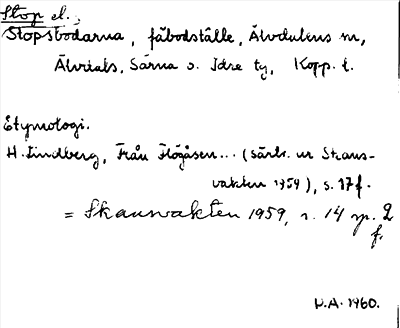 Stop el.
Stopsbodarna, fäbodställe, Älvdalens sn,
Älvdals, Särna o. Idre tg, Kopp. l.
Etymologi.
H. Lindberg, Från Flögåsen... (särtr. ur Skans-
vakten 1959), s. 17 f.
= Skansvakten 1959, s. 14 sp. 2
f.
H.A. 1960.